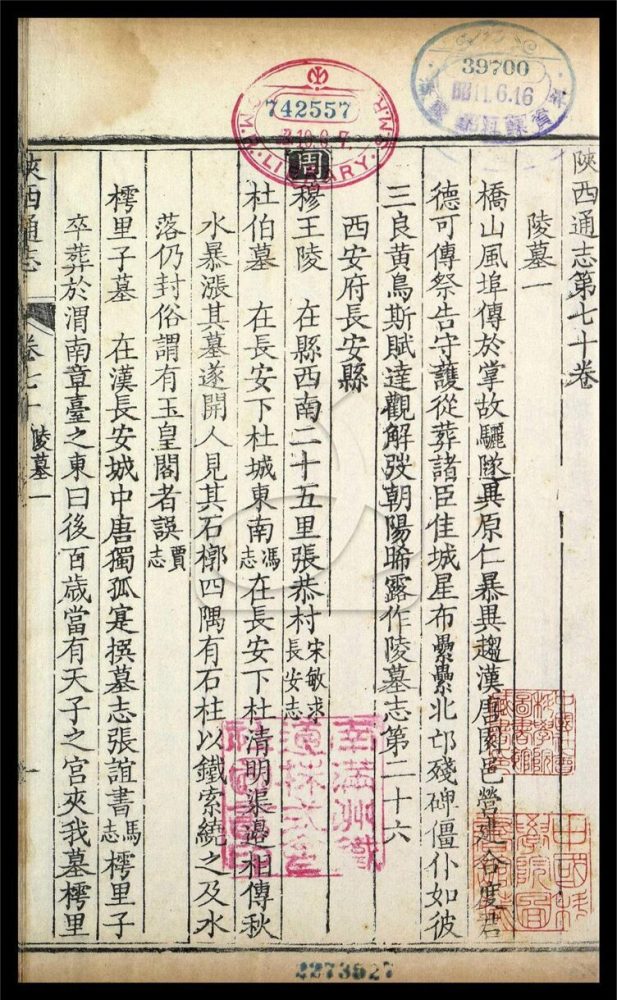 742557
39700
昭11.6.16
陝西通志第七十卷
陵墓一
橋山風埠傳於掌故驪隧異原仁暴異趨漢唐園邑營建合度君
德可傳祭告守護從葬諸臣佳城星布纍纍北邙殘碑僵仆如彼
三良黃鳥斯賦達觀解弢朝陽晞露作陵墓志第二十六
西安府長安縣
周穆王陵 在縣西南二十五里張恭村宋敏求長安志
杜伯墓 在長安下杜城東南馮志在長安下杜清明渠邉相傳秋
水暴漲其墓遂開人見其石槨四隅有石柱以鐵索繞之及水
落仍封俗謂有玉皇閣者誤賈志
樗里子墓 在漢長安城中唐獨孤寔撰墓志張誼書馮志樗里子
卒葬於渭南章臺之東曰後百歲當有天子之宮夾我墓樗里
陝西通志 卷七十 陵墓一
南滿洲鐵
道株式會
中國科
學院圖
2273527